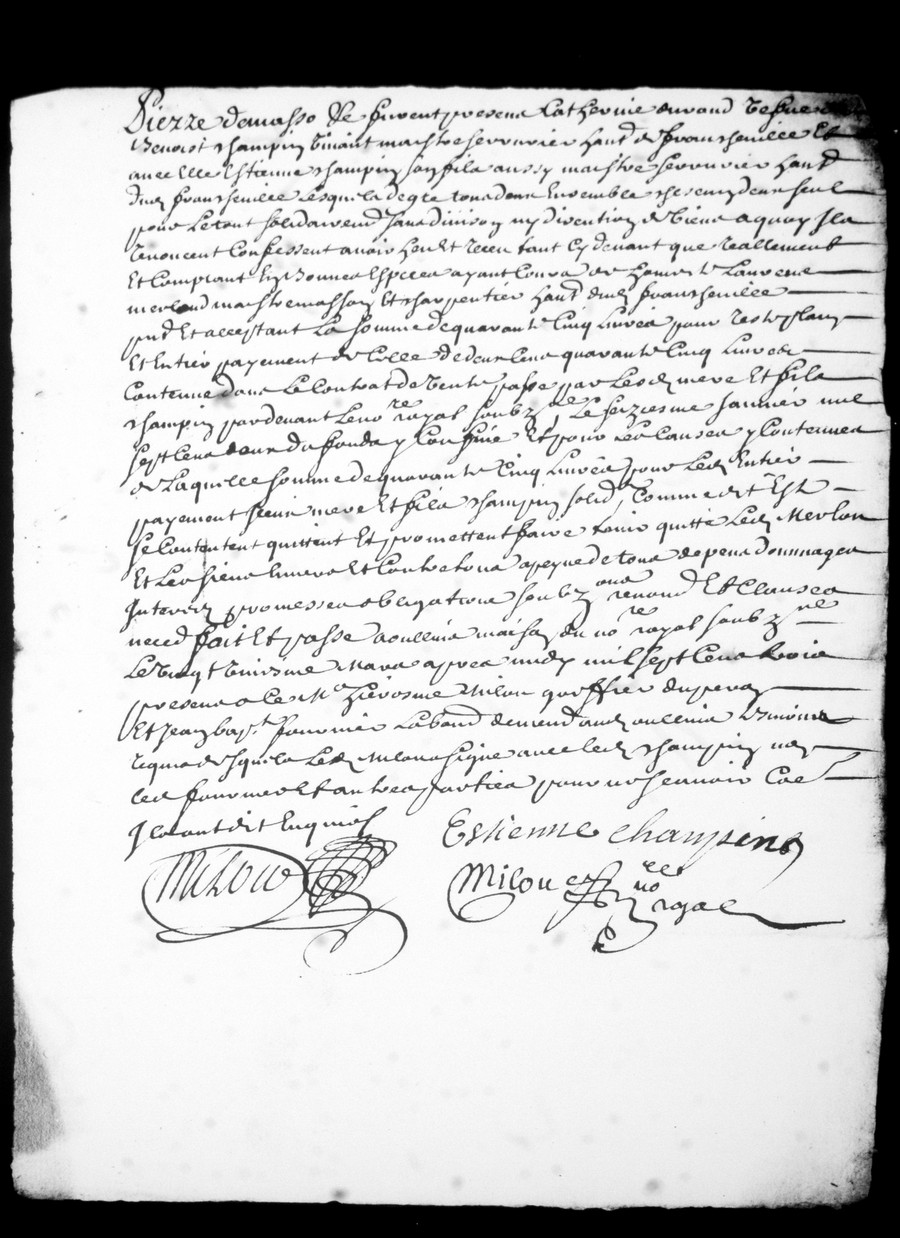 Pierre demasso Se furent presens Catherine durand vefue
Benoist champin vivant maistre serrurier habt de francheville Et
avec Elle Estienne champin son fils aussy maistre serrurier habt
dud francheville Lesquels de gre tous deux Ensemble chescung deux seul
pour Le tout solidairemt sans division ny discution de biens a quoy Ils
renoncent Confessent avoir heu Et receu tant Cy devant que reallement
Et Comptant En bonnes Especes ayant Cours de honneste Laurens
merlond maistre masson Et charpentier habt dud francheville
pnt Et acceptant La somme de quarante Cinq Livres pour reste plain
Et Entier payement de Celle de deux Cens quarante Cinq Livres
Contenue dans Le Contrat de vente passe par Lesd mere Et fils
champin pardevant Le nore royal soubzne Le seziesme Janvier mil
sept Cens deux du fonds y Confine Et pour Les Causes y Contenues
de Laquelle somme de quarante Cinq Livres pour Led Entier
payement Iceux mere Et fils champin solidt Comme dit Est
se Contentent quittent Et promettent faire tenir quitte Led Merlon
Et Les siens Envers Et Contre tous a peyne de tous depens dommages
Interets promesses obligations soubzons renond Et Clauses
necesd fait Et passe a oullins maison du nore royal soubzne
Le vingt huisme Mars apres midy mil sept Cens trois
presens a ce Me hierosme Milon greffier du peron
Et Jean bapt fournier Laband demeurt aud oullins tesmoins
requis desquels Led Milon a signe avec led champin non
led fournier Et autres parties pour ne scavoir Cae
Ils ont dit Enquis
Estienne champin
Milon
Milon
nore
royal